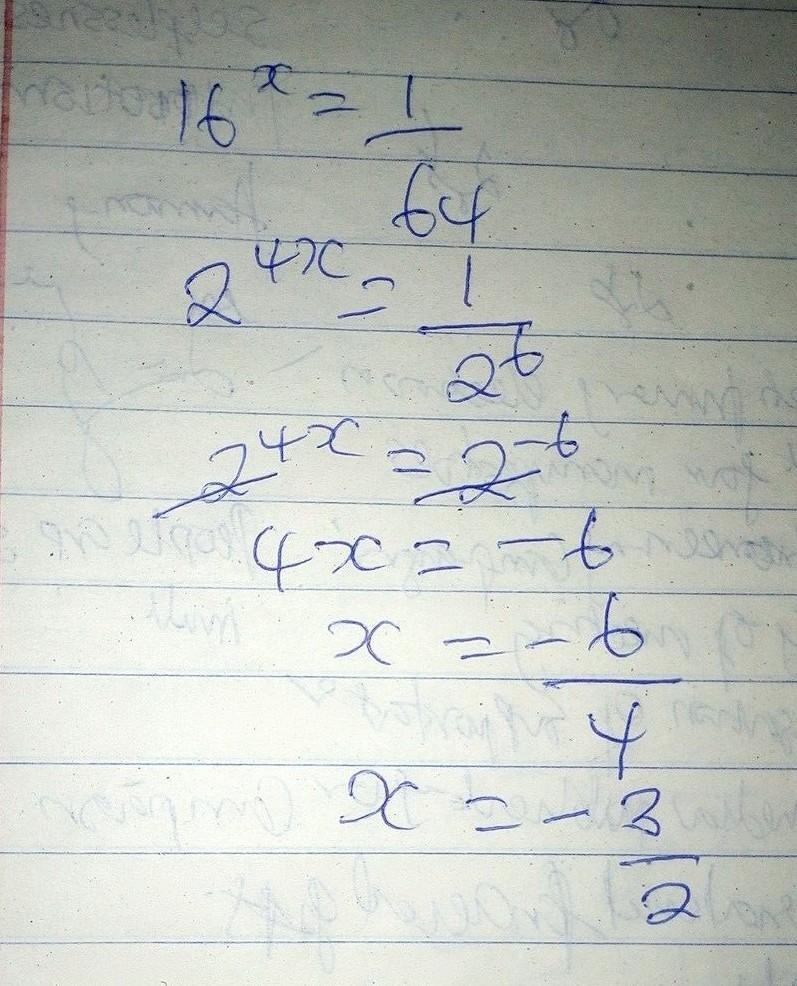 16^x = 1/64
2^4x = 1/2^6
2^4x = 2^-6
4x = -6
x = -6/4
x = -3/2